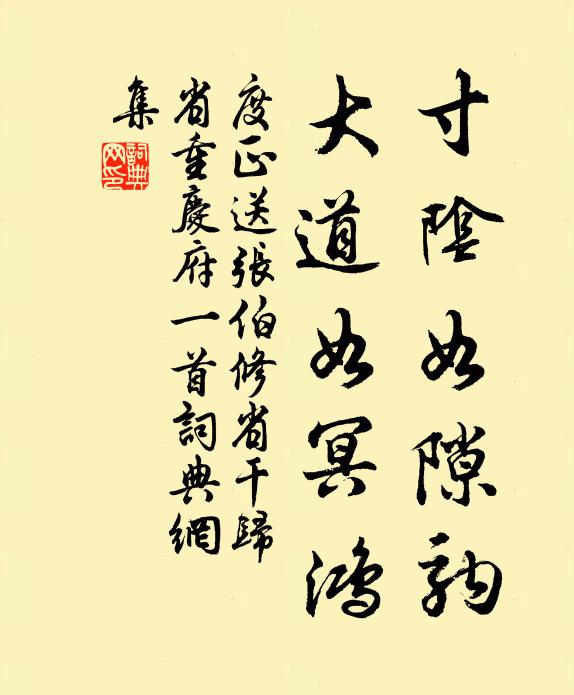 寸陰如隙駒
大道如冥鴻
度正送張伯修省干歸
省重慶府一首詞典網
集
詞典
网印